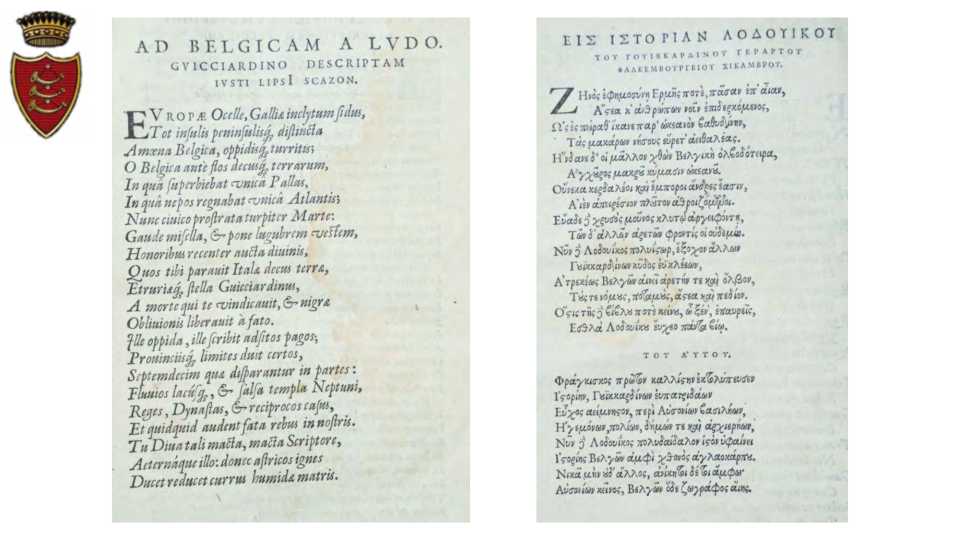 AD BELGICAM A LVDO.
GVICCIARDINO DESCRIPTAM
IVSTI LIPSI SCAZON.
EVROPÆ Ocelle, Galliæ inclytum sidus,
Tot insulis peninsulisq́; distincta
Amœna Belgica, oppidisq́; turritis;
O Belgica ante flos decusq́; terrarum,
In quâ superbiebat vnica Pallas,
In quâ nepos regnabat vnicæ Atlantis;
Nunc ciuico prostrata turpiter Marte:
Gaude misella, & pone lugubrem vestem,
Honoribus recenter aucta diuinis,
Quos tibi parauit Italæ decus terræ,
Etruriæq́; stella Guicciardinus,
A morte qui te vindicauit, & nigræ
Obliuionis liberauit à fato.
Ille oppida, ille scribit adsitos pagos,
Prouinciisq́; limites duit certos,
Septemdecim quæ disparantur in partes:
Fluuios lacúsq́;, & salsa templa Neptuni,
Reges, Dynastas, & reciprocos casus,
Et quidquid audent fata rebus in nostris.
Tu Diua tali macta, macta Scriptore,
Aeternáque illo: donec astricos ignes
Ducet reducet currus humidæ matris.
ΕΙΣ ΙΣΤΟΡΙΑΝ ΛΟΔΟΥΙΚΟΥ
ΤΟΥ ΓΟΥΙΚΚΑΡΔΙΝΟΥ ΓΕΡΑΡΤΟΥ
ΦΑΛΚΕΜΒΟΥΡΓΕΙΟΥ ΣΙΚΑΜΒΡΟΥ.
ΖΗνὸς ἐφημοσύνῃ Ἑρμῆς ποτὲ, πᾶσαν ἐπ' αἶαν,
Ἄστεα κ' ἀνθρώπων νοῦν ἐπιδερκόμενος,
Ὡς ἐς πείραθ' ἵκανε παρ' ὠκεανὸν βαθυδίνην,
Τὰς μακάρων νήσους εὗρετ' ἀειθαλέας.
Ἥνδανε δ' οἱ μᾶλλον χθὼν Βελγικὴ ὀλβοδότειρα,
Ἀγχῦρος μακροῦ κύμασιν ὠκεανοῦ.
Οὕνεκα κερδαλέοι καὶ ἔμποροι ἄνδρες ἔασιν,
Αἰὲν ἀπειρέσιον πλοῦτον ἀθροιζόμενοι.
Εὔαδε χρυσὸς μοῦνος κλυτῷ ἀργειφόντῃ,
Τῶν δ' ἄλλων ἀρετῶν φροντὶς οἱ οὐδεμία.
Νῦν Λοδουῖκος πολυΐστωρ, ἔξοχον ἄλλων
Γυϊκκαρδίνων κῦδος ἐϋκλεέων,
Ἀτρεκέως Βελγῶν αἰνεῖ ἀρετήν τε καὶ ὄλβον,
Τούς τε νόμους, ποταμοὺς, ἄστεα καὶ πεδίον.
βίβλου ποτὲ κείνου, ὦ ξεῖν', ἐπαυρεῖς,
Ἐσθλὰ Λοδουίκῳ εὔχεο πάντα βίῳ.
ΤΟΥ ΑΥΤΟΥ.
Φράγκισκος πρῶτον καλλίστην ἐκτολύπευσεν
Ἱστορίην, Γυϊκκαρδίνων εὐπατριδάων
Εὖχος ἀείμνηστον, περὶ Αὐσονίων βασιλήων,
Ἡγεμόνων, πολίων, δήμων τε καὶ ἀρχιερήων,
Νῦν Λοδουῖκος πολυδαίδαλον ἱστὸν ὑφαίνει
Ἱστορίης Βελγῶν ἀμφὶ χθονὸς ἀγλαοκάρπου.
Νικᾷ μὴν οὐδ' ἄλλος, ἀνίκητοι δέ τοι ἄμφω
Αὐσονίων κεῖνος, Βελγῶν ὅδε ζωγράφος αἴης.